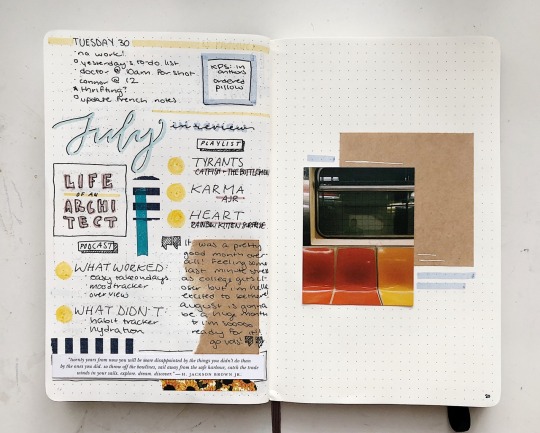 TUESDAY 30
no work!
yesterday's to-do list
doctor @ 10am for shot
connor @ 12
thrifting?
update french notes
ordered
pillows
July in review
PLAYLIST
TYRANTS
CATFISH + THE BOTTLEMEN
KARMA
AJR
HEART
RAINBOW KITTEN SURPRISE
LIFE
OF AN
ARCHI
TECT
PODCAST
WHAT WORKED:
easy takeondays
mood tracker
overview
WHAT DIDN'T:
habit tracker
hydration
It was a pretty
good month over
all! Feeling some
last minute stress
as college gets
over but i'm
excited to be there!
august is gonna
be a huge month
& i'm sooooo
ready for it!
go lals!
"twenty years from now you will be more disappointed by the things you didn't do than
by the ones you did. so throw off the bowlines, sail away from the safe harbour, catch the trade
winds in your sails. explore. dream. discover." — H. JACKSON BROWN JR.